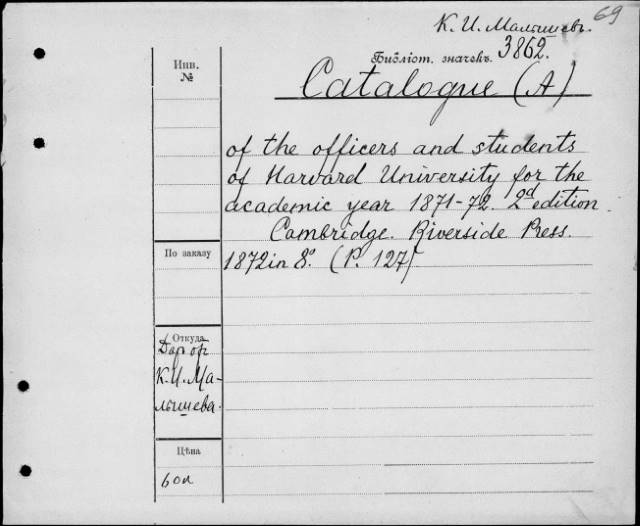 69
К. И. Малышевъ.
Библіот. значекъ. 3862.
Инв.
№
Catalogue (A)
of the officers and students
of Harvard University for the
academic year 1871-72. 2d edition
Cambridge. Riverside Press
1872 in 8º. (P. 127)
По заказу
Откуда
Дар от
К. И. Ма-
лышева.
Цѣна